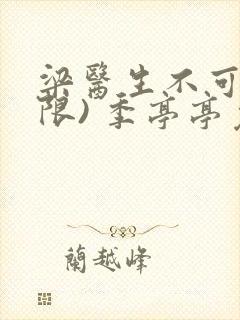 梁醫生不可
限) 季亭亭
蘭越峰